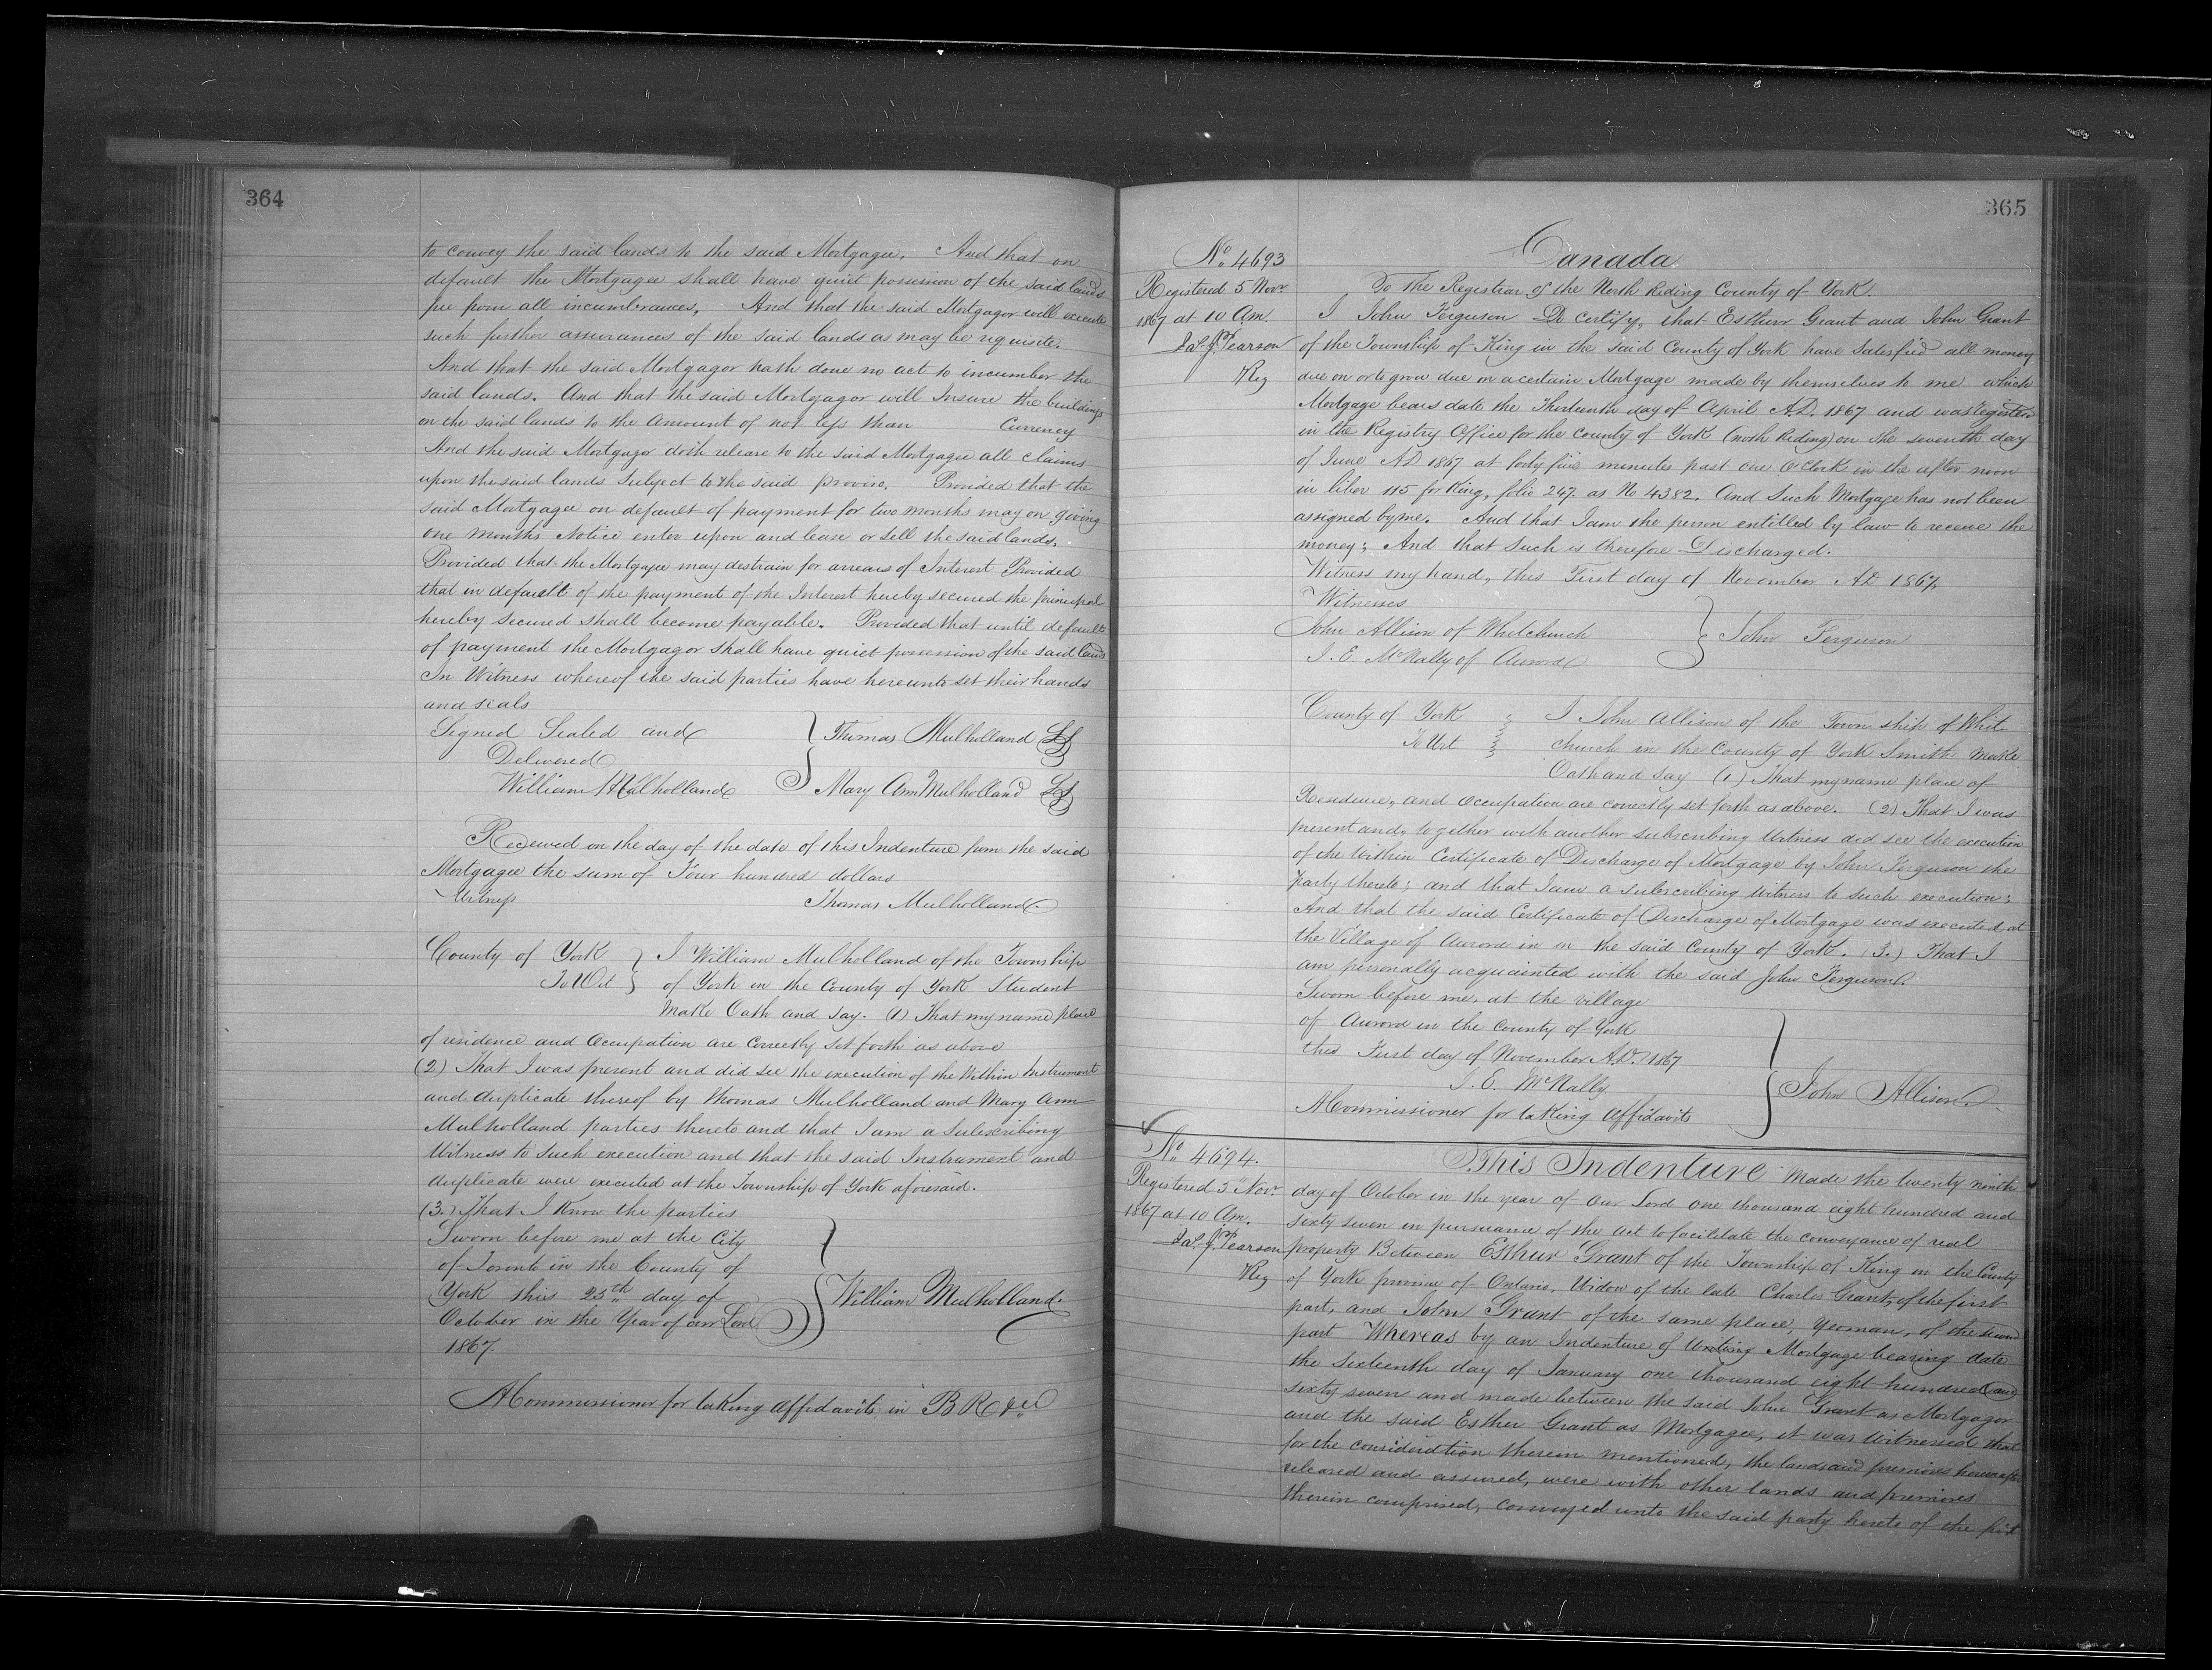 364
to convey the said lands to the said Mortgagee. And that on
default the Mortgagee shall have quiet possession of the said lands
free from all incumbrances, And that the said Mortgagor will execute
such further assurances of the said lands as may be requisite.
And that the said Mortgagor hath done no act to incumber the
said lands. And that the said Mortgagor will Insure the buildings
on the said lands to the amount of not less than Currency
And the said Mortgagor doth release to the said Mortgagee all claims
upon the said lands Subject to the said proviso. Provided that the
said Mortgagee on default of payment for two months may on giving
one months Notice enter upon and lease or Sell the said lands.
Provided that the Mortgagee may destrain for arrears of Interest Provided
that in default of the payment of the Interest hereby secured the principal
hereby secured shall become payable. Provided that until default
of payment the Mortgagor shall have quiet possession of the said lands
In Witness whereof the said parties have hereunto set their hands
and seals
Signed Sealed and } Thomas Mulholland LS
Delivered
William Mulholland } Mary Ann Mulholland LS
Received on the day of the date of this Indenture from the said
Mortgagee the sum of Four hundred dollars
Witness Thomas Mulholland
County of York } I William Mulholland of the Township
To Wit } of York in the County of York Student
Make Oath and Say. (1) That my name place
of residence and Occupation are Correctly set forth as above
(2) That I was present and did see the execution of the Within Instrument
and duplicate thereof by Thomas Mulholland and Mary Ann
Mulholland parties thereto and that I am a Subscribing
Witness to Such execution and that the said Instrument and
duplicate were executed at the Township of York aforesaid.
(3.) That I Know the parties
Sworn before me at the City
of Toronto in the County of
York this 25th day of } William Mulholland.
October in the Year of our Lord
1867.
A Commissioner for taking affidavits in B R &c
365
No. 4693
Registered 5 Novr
1867 at 10 Am.
Jas. J. Pearson
Reg
Canada
To The Registrar of the North Riding County of York.
I John Ferguson Do Certify, that Esther Grant and John Grant
of the Township of King in the said County of York have Satesfied all money
due on or to grow due on a certain Mortgage made by themselves to me which
Mortgage bears date the Thirteenth day of April A.D. 1867 and was registered
in the Registry Office for the County of York (north Riding) on the seventh day
of June AD 1867 at forty five minutes past one O'Clock in the after noon
in liber 115 for King, folio 247. as No 4382. And Such Mortgage has not been
assigned by me. And that I am the person entitled by law to receive the
money; And that Such is therefore Discharged.
Witness my hand, this First day of November AD 1867,
Witnesses
John Allison of Whitchurch } John Ferguson
J. E. McNally of Aurora
County of York I John Allison of the Town ship of Whit-
To Wit church in the County of York Smith Make
Oath and Say (1) That my name place of
Residence, and Occupation are correctly set forth as above. (2) That I was
present and, together with another Subscribing Witness did see the execution
of the Within Certificate of Discharge of Mortgage by John Ferguson the
Party thereto; and that I am a subscribing Witness to such execution;
And that the said Certificate of Discharge of Mortgage was executed at
the Village of Aurora in in the said County of York. (3.) That I
am personally acquainted with the said John Ferguson.
Sworn before me, at the village
of Aurora in the County of York
this First day of November A.D. 1867
J. E. McNally } John Allison
A Commissioner for taking affidavits
No. 4694.
Registered 5 Novr.
1867 at 10 Am.
Jas. J. Pearson
Reg
This Indenture Made the twenty ninth
day of October in the year of our Lord one thousand eight hundred and
sixty seven in pursuance of the act to facilitate the conveyance of real
property Between Esther Grant of the Township of King in the County
of York province of Ontario, Widow of the late Charles Grant, of the first
part, and John Grant of the same place, yeoman, of the second
part Whereas by an Indenture of Mortgage bearing date
the Sixteenth day of January one thousand eight hundred and
sixty seven and made between the said John Grant as Mortgagor
and the said Esther Grant as Mortgagee, it was Witnessed that
for the consideration therein mentioned, the lands and premises hereinafter
released and assured, were with other lands and premises
therein comprised, conveyed unto the said party hereto of the first